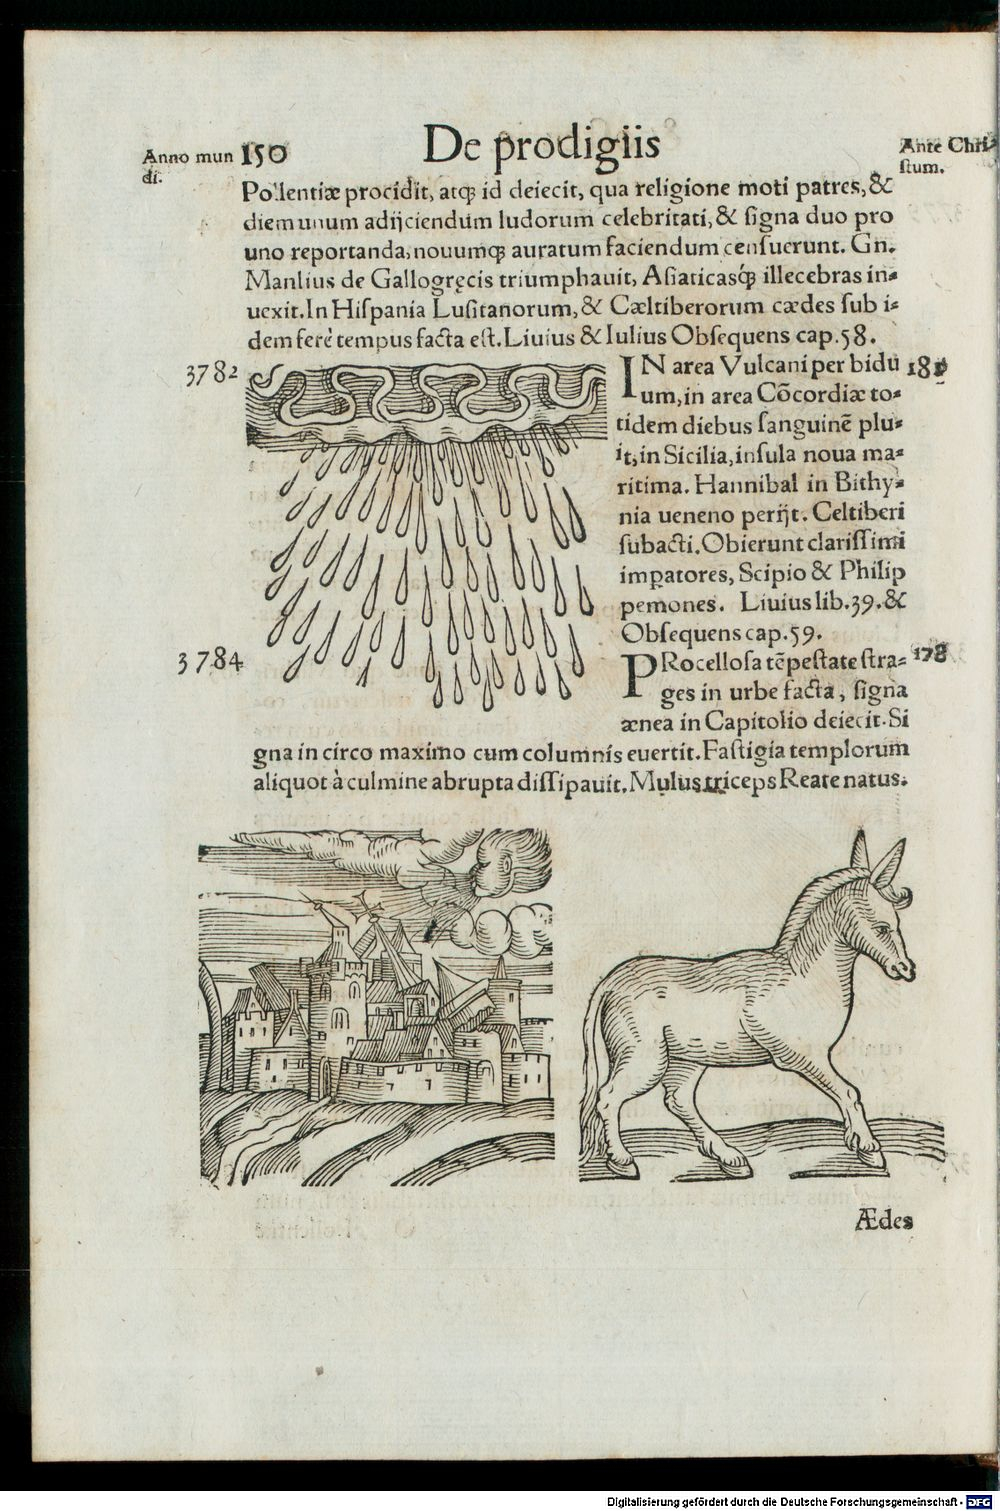 Anno mun
di.
150
De prodigiis
Ante Chri
ſtum.
Pollentiæ procidit, atq́; id deiecit, qua religione moti patres, &
diem unum adijciendum ludorum celebritati, & ſigna duo pro
uno reportanda, nouumq́; auratum faciendum cenſuerunt. Gn.
Manlius de Gallogręcis triumphauit, Aſiaticasq́; illecebras in⸗
uexit. In Hiſpania Luſitanorum, & Cæltiberorum cædes ſub i⸗
dem ferè tempus facta eſt. Liuius & Iulius Obſequens cap. 58.
3782
IN area Vulcani per bidu
um, in area Cōcordiæ to⸗
tidem diebus ſanguinē plu⸗
it, in Sicilia, inſula noua ma⸗
ritima. Hannibal in Bithy⸗
nia ueneno perijt. Celtiberi
ſubacti. Obierunt clariſſimi
imꝑatores, Scipio & Philip
pemones. Liuius lib. 39. &
Obſequens cap. 59.
3784
PRocelloſa tēpeſtate ſtra⸗
178
ges in urbe facta, ſigna
ænea in Capitolio deiecit. Si
gna in circo maximo cum columnis euertit. Faſtigia templorum
aliquot à culmine abrupta diſſipauit. Mulus triceps Reate natus.
Ædes
Digitalisierung gefördert durch die Deutsche Forschungsgemeinschaft - DFG